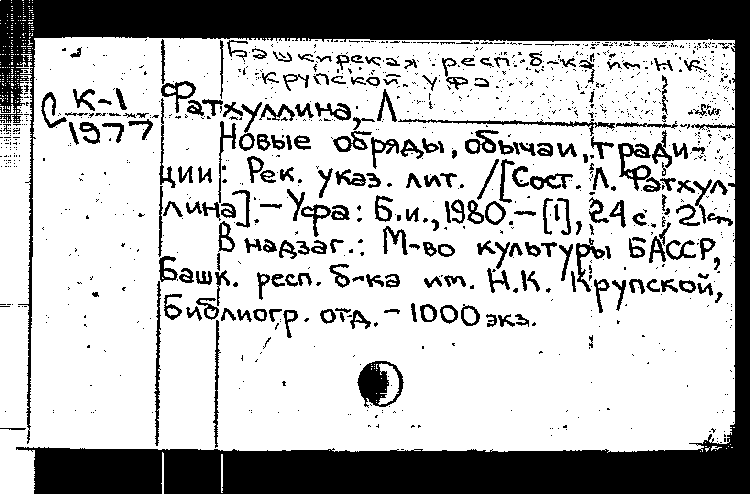 Башкирская респ. б-ка им. Н.К.
Крупской. Уфа
К-1
1977
Фатхуллина, Л
Новые обряды, обычаи, тради-
ции: Рек. указ. лит. /[Сост. Л. Фатхул-
лина]. - Уфа: Б.и., 1980. - [1], 24 с.; 21 см
В надзаг.: М-во культуры БАССР,
Башк. респ. б-ка им. Н.К. Крупской,
Библиогр. отд. - 1000 экз.